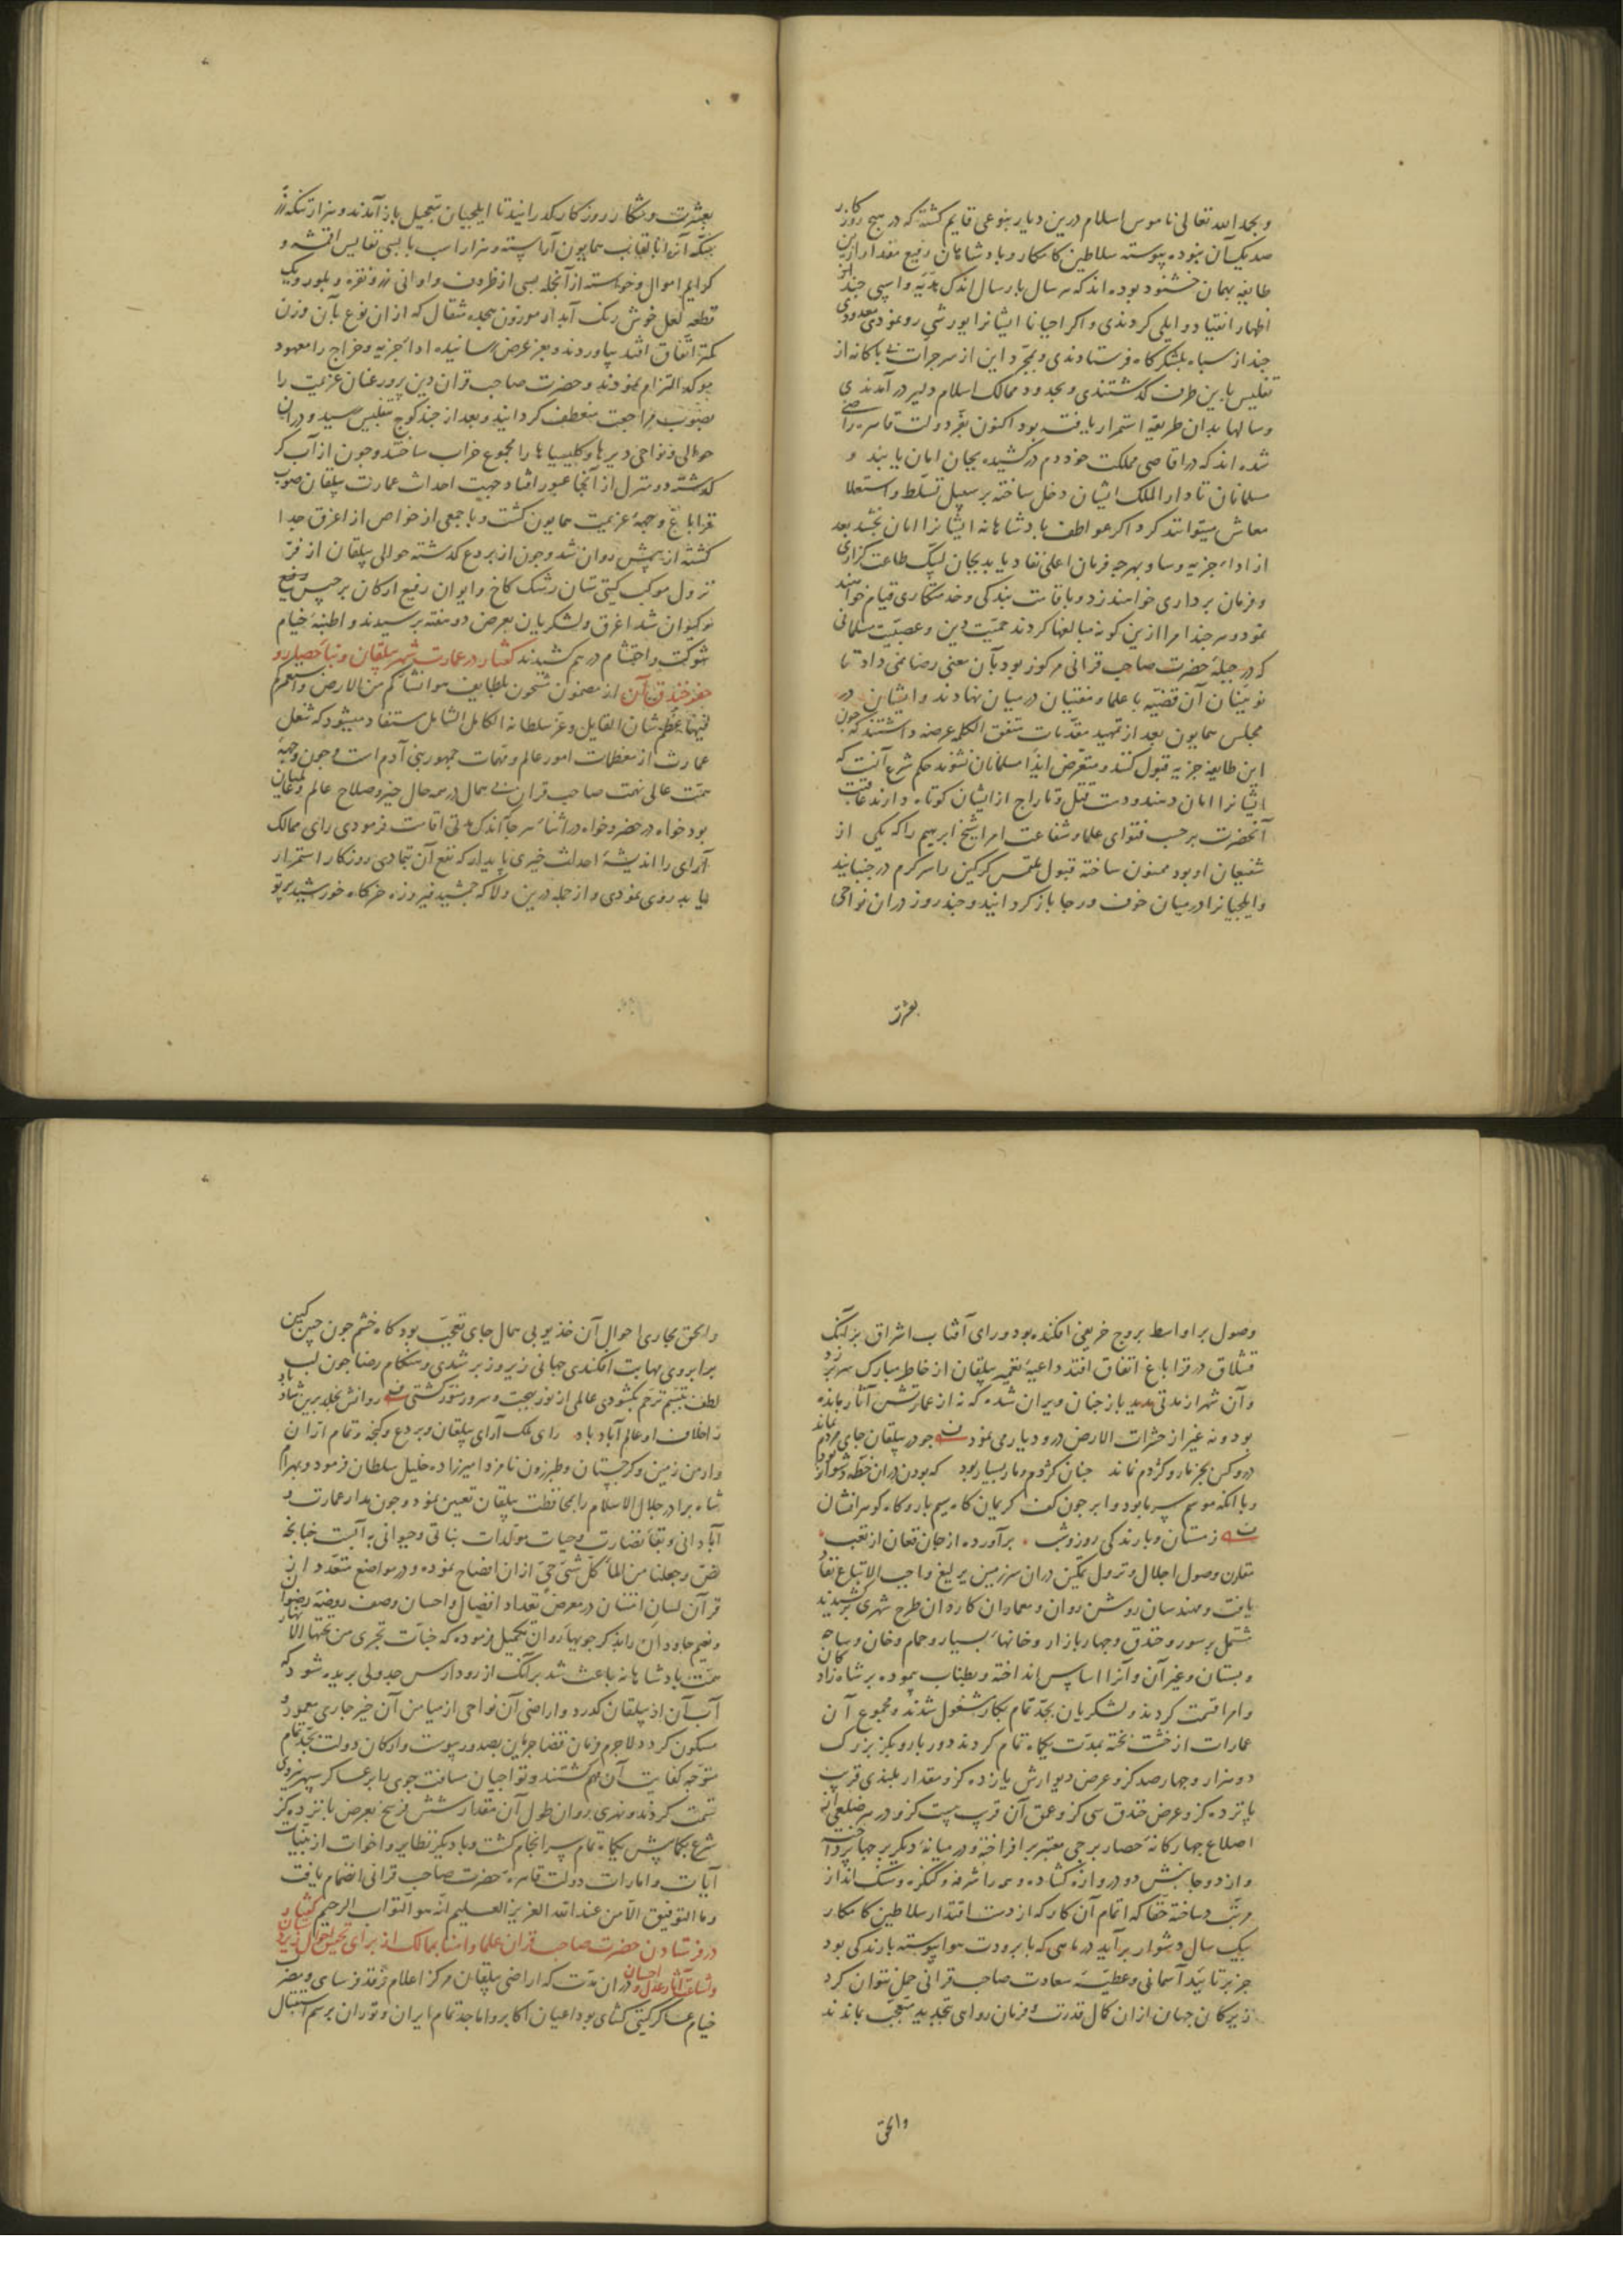 و بحمد الله تعالی ناموس اسلام درین دیار بنوعی قایم کشته که در هیچ روزکار
صد یک آن نبوده پیوسته سلاطین کامکار و بادشاهان رفیع مقدار ازین
طایفه بهمان خشنود بوده اند که هر سال بارسال اندک هدیه و اسپی جند از
اظهار انقیاد و ایلی کردندی و اکر احیانا ایشانرا یورشی رو نمودی معدودی
جند از سپاه بلشکرکاه فرستادندی و بمجرد این از سر جرات بی باکانه از
تفلیس باین طرف کذشتندی و بحدود ممالک اسلام دلیر در آمدندی
و سالها بدان طریقه استمرار یافته بود اکنون بفر دولت قاهره راضی
شده اند که در اقاصی مملکت خود دم در کشیده بجان امان یابند و
مسلمانان تا دار الملک ایشان دخل ساخته بر سبیل تسلط و استعلا
معاش میتوانند کرد اکر عواطف بادشاهانه ایشانرا امان بخشد بعد
از اداء جزیه و ساو بهرجه فرمان اعلی نفاد یابد بجان لبیک طاعت کزاری
و فرمان برداری خواهند زد و باقامت بندکی و خدمتکاری قیام خواهند
نمود و هر جند امرا ازین کونه مبالغها کردند حمیت دین و عصبیت مسلمانی
که در جبله حضرت صاحب قرانی مرکوز بود بآن معنی رضا نمی داد تا
نویینان آن قضیه با علما و مفتیان در میان نهادند و ایشان در
مجلس همایون بعد از تمهید مقدمات متفق الکلمه عرضه داشتند که جون
این طایفه جزیه قبول کنند و متعرض ایذاء مسلمانان نشوند حکم شرع آنست که
ایشانرا امان دهند و دست قتل و تاراج از ایشان کوتاه دارند عاقبت
آنحضرت بر حسب فتوای علما و شفاعت امرا شیخ ابرهیم را که یکی از
شفیعان او بود ممنون ساخته قبول ملتمس کرکین را سر کرم در جنبانید
و ایلجیانرا در میان خوف و رجا باز کردانید و جند روز دران نواحی
بعشرت
بعشرت و شکار روزکار کذرانید تا ایلجیان بتعجیل باز آمدند و هزار تنکه زر
بسکه آن بالقاب همایون آراسته و هزار اسب با بسی نفایس اقمشه و
کرایم اموال و خواسته از آنجمله بسی از ظروف و اوانی زر و نقره و بلور و یک
قطعه لعل خوش رنک آبدار موزون هجده مثقال که از ان نوع بآن وزن
کمتر اتفاق افتد بیاوردند و بعز عرض رسانیده اداء جزیه و خراج را معهود
موکد التزام نمودند و حضرت صاحب قران دین پرور عنان عزیمت را
بصوب مراجعت منعطف کردانید و بعد از جند کوج بتفلیس رسید و دران
حوالی و نواحی دیرها و کلیسیاها را مجموع خراب ساختند و جون از آب کر
کذشته دو منزل از آنجا عبور افتاد جهت احداث عمارت بیلقان صوب
قراباغ وجهه عزیمت همایون کشت و با جمعی از خواص از اغرق جدا
کشته از پیش روان شد و جون از بردع کذشته حوالی بیلقان از فر
نزول موکب کیتی ستان رشک کاخ و ایوان رفیع ارکان برجیس رفیع
و کیوان شد اغرق و لشکریان بعرض دو هفته برسیدند و اطنبه خیام
شوکت و احتشام در هم کشیدند کفتار در عمارت شهر بیلقان و بناء حصار و
حفر خندق آن از مضمون مشحون بلطایف هو انشاکم من الارض و استعمرکم
فیها عظم شان القایل و عز سلطانه الکامل الشامل مستفاد میشود که شغل
عمارت از معظمات امور عالم و مهمات جمهور بنی آدم است و جون وجهه
همت عالی نهمت صاحب قران بی همال در همه حال خیر و صلاح عالم و عالمیان
بود خواه در حضر و خواه در اثناء سفر هر جا اندک مدتی اقامت فرمودی رای ممالک
آرای را اندیشه احداث خیری پایدار که نفع آن بتمادی روزکار استمرار
یابد روی نمودی و از جمله درین ولا که جمشید فیروزه خرکاه خورشید پرتو
وصول بر اواسط بروج خریفی افکنده بود و رای آفتاب اشراق بر آنک
قشلاق در قراباغ اتفاق افتد داعیه تعمیر بیلقان از خاطر مبارک سر بر زد
و آن شهر از مدتی مدید باز جنان ویران شده که نه از عمارتش آثار مانده
بود و نه غیر از حشرات الارض در و دیار می نمود جو در بیلقان جای مردم نماند
درو کس بجز مار و کژدم نماند جنان کژدم و مار بسیار بود که بودن دران خطه دشوار بود
و با آنکه موسم سرما بود و ابر جون کف کریمان کاه سیم بار و کاه کوهر افشان
زمستان و بارندکی روز و شب برآورده از جان فغان از تعب
مقارن وصول اجلال و نزول تمکین دران سرزمین یرلیغ واجب الاتباع نفاد
یافت و مهندسان روشن روان و معماران کاردان طرح شهری برکشیدند
مشتمل بر سور و خندق و جهار بازار و خانها بسیار و حمام و خان و ساحه
و بستان و غیر آن و آنرا اساس انداخته و بطناب پیموده بر شاه زادکان
و امرا قسمت کردند و لشکریان بجد تمام بکار مشغول شدند و مجموع آن
عمارات از خشت پخته بمدت یکماه تمام کردند دور بارو بکز بزرک
دو هزار و جهار صد کز و عرض دیوارش یازده کز و مقدار بلندی قریب
پانزده کز و عرض خندق سی کز و عمق آن قریب بیست کز و در هر ضلعی از
اضلاع جهارکانه حصار برجی معتبر برافراخته و در میانه دیکر برجها پرداخت
و از دو جانبش دو دروازه کشاده و همه را شرفه و کنکره و سنک انداز
مرتب ساخته حقا که اتمام آن کار که از دست اقتدار سلاطین کامکار
بیک سال دشوار برآید در ماهی که با برودت هوا پیوسته بارندکی بود
جز بر تایید آسمانی و عطیه سعادت صاحب قرانی حمل نتوان کرد
زیرکان جهان ازان کمال قدرت و فرمان روایی بتجدید متعجب بماندند
والحق
والحق مجاری احوال آن خدیو بی همال جای تعجب بود کاه خشم جون جین کین
بر ابروی مهابت افکندی جهانی زیر و زبر شدی و هنکام رضا جون لب
لطف بتبسم ترحم بکشودی عالمی از نور بهجت و سرور منور کشتی روانش بخلد برین شاد باد
ز اخلاف او عالم آباد باد رای ملک آرای بیلقان و بردع و کنجه و تمام اران
و ارمن زمین و کرجستان و طبرزون نامزد امیرزاده خلیل سلطان فرمود و بهرام
شاه برادر جلال الاسلام را بمحافظت بیلقان تعیین نمود و جون مدار عمارت و
آبادانی و بقاء نضارت و حیات مولدات نباتی و حیوانی به آبست جنانجه
نص و جعلنا من الماء کل شیء حی ازان افصاح نموده و در مواضع متعدد از
قرآن لسان امتنان در معرض تعداد افضال و احسان وصف روضه رضوان
و نعیم جاودان را بذکر جویهاء روان تکمیل فرموده که جنات تجری من تحتها الانهار
همت بادشاهانه باعث شد بر آنک از رود ارس جدولی بریده شود که
آب آن از بیلقان کذرد و اراضی آن نواحی از میامن آن خیر جاری معمور و
مسکون کردد لاجرم فرمان قضا جریان بصدور پیوست و ارکان دولت بجد تمام
متوجه کفایت آن مهم کشتند و تواجیان مسافت جوی را بر عساکر سپهر نیروی
قسمت کردند و نهری روان طول آن مقدار شش فرسخ بعرض پانزده کز
شرع بکمابیش یکماه تمام سرانجام کشت و با دیکر نظایر و اخوات از بینات
آیات و امارات دولت قاهره حضرت صاحب قرانی انضمام یافت
وما التوفیق الا من عند الله العزیز العلیم انه هو التواب الرحیم کفتار
در فرستادن حضرت صاحب قران علما و امنا بممالک از برای تحقیق احوال زیردستان
و اشاعت آثار عدل و احسان دران مدت که اراضی بیلقان مرکز اعلام فرقد فرسای و مضرب
خیام عساکر کیتی کشای بود اعیان اکابر و اماجد تمام ایران و توران برسم استقبال